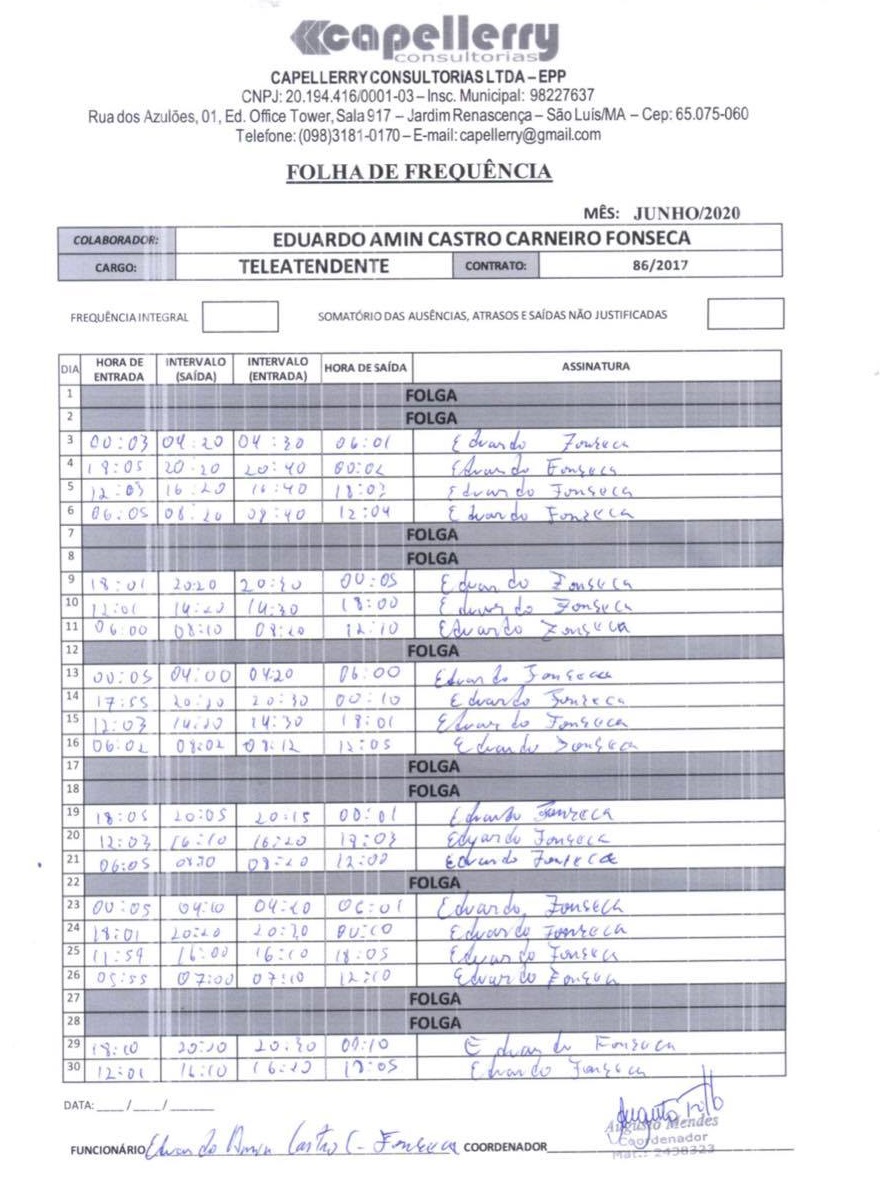 capellerry
consultorias
CAPELLERRY CONSULTORIAS LTDA – EPP
CNPJ: 20.194.416/0001-03 – Insc. Municipal: 98227637
Rua dos Azulões, 01, Ed. Office Tower, Sala 917 – Jardim Renascença – São Luís/MA – Cep: 65.075-060
Telefone: (098)3181-0170 – E-mail: capellerry@gmail.com
FOLHA DE FREQUÊNCIA
MÊS: JUNHO/2020
COLABORADOR: EDUARDO AMIN CASTRO CARNEIRO FONSECA
CARGO: TELEATENDENTE CONTRATO: 86/2017
FREQUÊNCIA INTEGRAL SOMATÓRIO DAS AUSÊNCIAS, ATRASOS E SAÍDAS NÃO JUSTIFICADAS
DIA HORA DE ENTRADA INTERVALO (SAÍDA) INTERVALO (ENTRADA) HORA DE SAÍDA ASSINATURA
1 FOLGA
2 FOLGA
3 00:03 04:20 04:30 06:01 Eduardo Fonseca
4 20:20 20:40 Eduardo Fonseca
5 12:03 16:20 16:40 18:03 Eduardo Fonseca
6 06:05 08:20 08:40 12:04 Eduardo Fonseca
7 FOLGA
8 FOLGA
9 18:01 20:20 20:30 00:05 Eduardo Fonseca
10 12:01 14:20 14:30 18:00 Eduardo Fonseca
11 06:00 08:10 08:20 12:10 Eduardo Fonseca
12 FOLGA
13 00:05 04:00 04:20 06:00 Eduardo Fonseca
14 17:55 20:20 20:30 00:10 Eduardo Fonseca
15 12:03 14:20 14:30 18:01 Eduardo Fonseca
16 06:02 08:02 08:12 12:05 Eduardo Fonseca
17 FOLGA
18 FOLGA
19 18:05 20:05 20:15 00:01 Eduardo Fonseca
20 12:03 16:10 16:20 18:03 Eduardo Fonseca
21 06:05 08:20 12:02 Eduardo Fonseca
22 FOLGA
23 00:05 04:10 04:20 06:01 Eduardo Fonseca
24 18:01 20:20 00:10 Eduardo Fonseca
25 11:59 16:00 16:10 18:05 Eduardo Fonseca
26 05:55 07:00 07:10 12:10 Eduardo Fonseca
27 FOLGA
28 FOLGA
29 18:10 20:20 20:30 00:10 Eduardo Fonseca
30 12:01 16:10 16:20 18:05 Eduardo Fonseca
DATA: ___/___/______
FUNCIONÁRIO Eduardo Amin Castro C. Fonseca COORDENADOR
Augusto Mendes
Coordenador
Mat.: 2498323